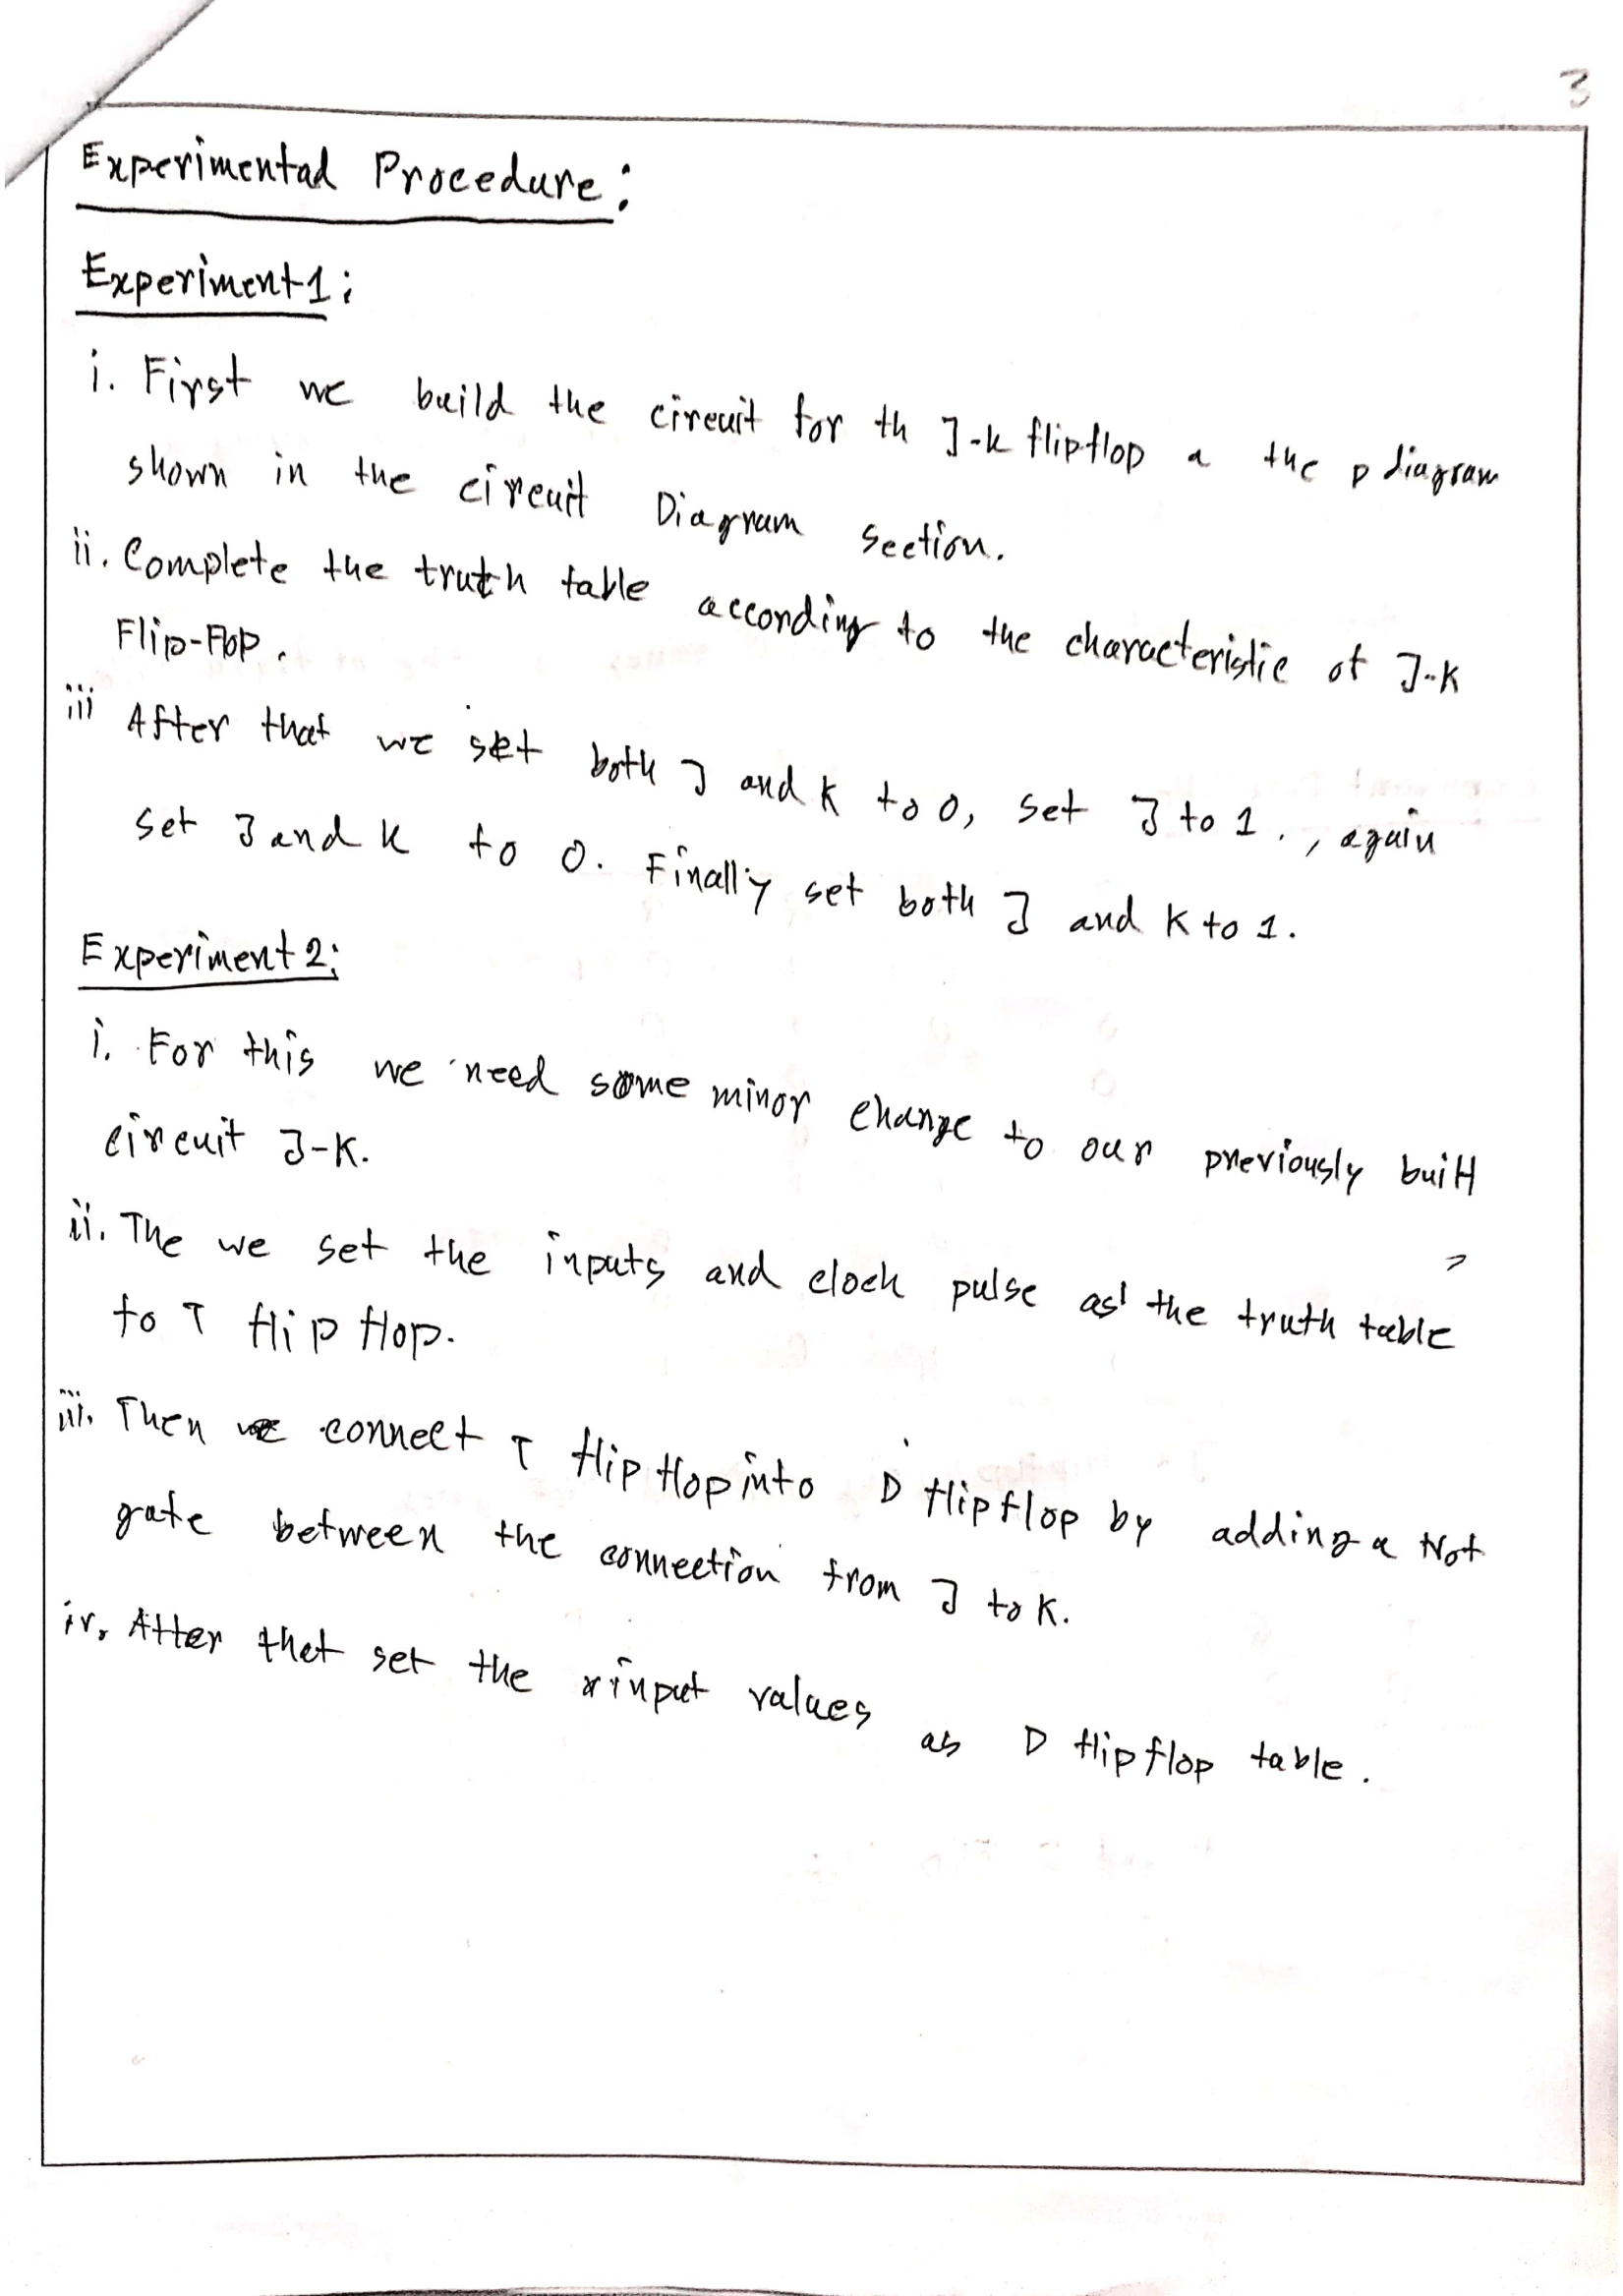 3
Experimental Procedure:
Experiment 1:
i. First we build the circuit for th J-k flipflop a the p diagram
shown in the circuit Diagram section.
ii. Complete the truth table according to the characteristic of J-K
Flip-Flop.
iii After that we set both J and K to 0, set J to 1., again
set J and K to 0. Finally set both J and K to 1.
Experiment 2:
i. For this we need some minor change to our previously built
circuit J-K.
ii. The we set the inputs and clock pulse as the truth table
to T flip flop.
iii. Then we connect T flip flop into D flip flop by adding a Not
gate between the connection from J to K.
iv. After that set the input values as D flip flop table.